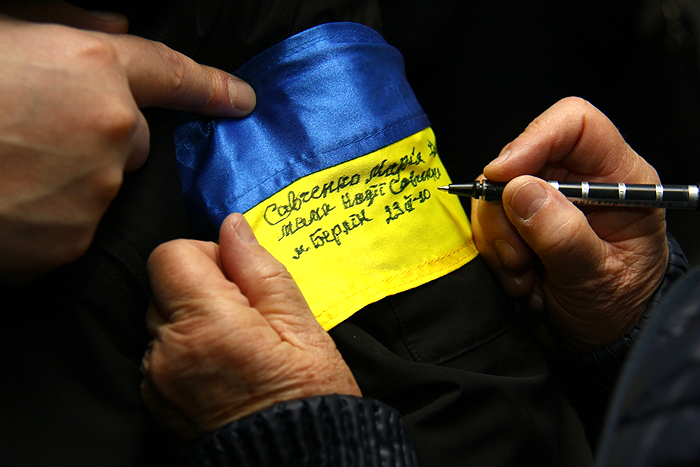 Савченко Марія
мама Надії Савченко
м. Берлін